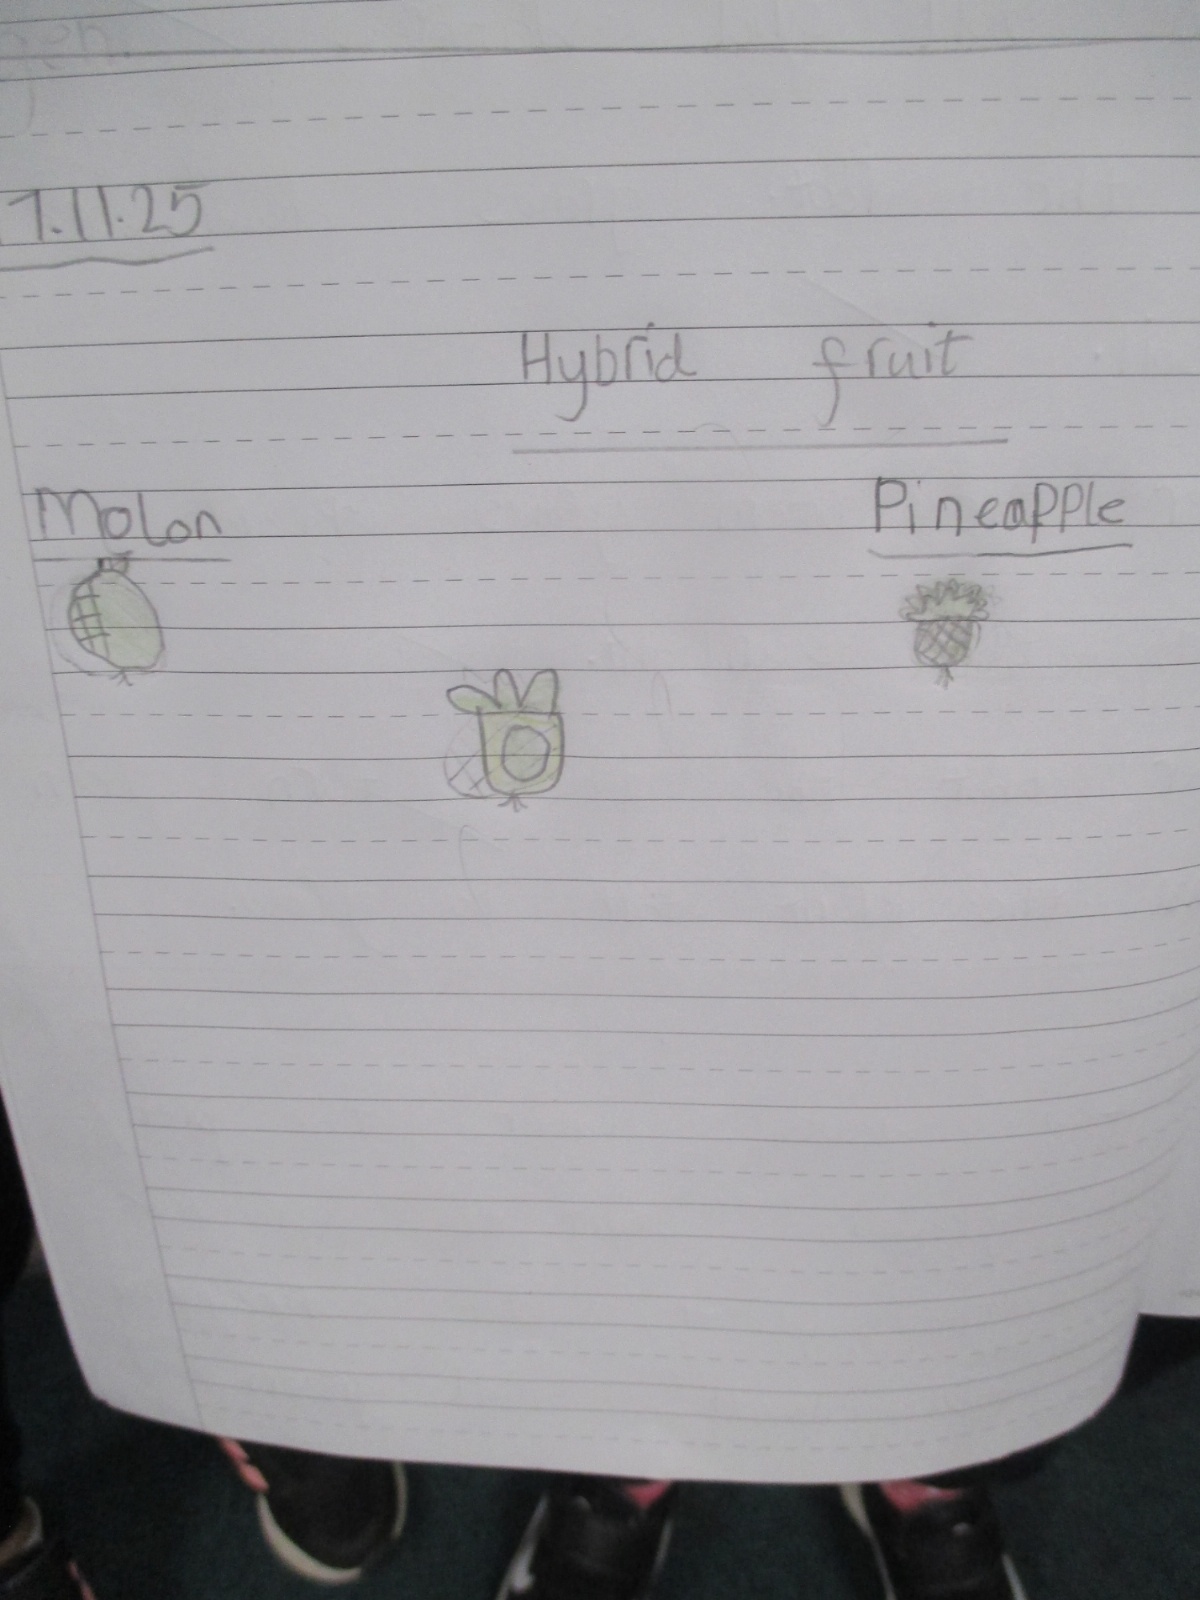 7.11.25
Hybrid fruit
Molon
Pineapple